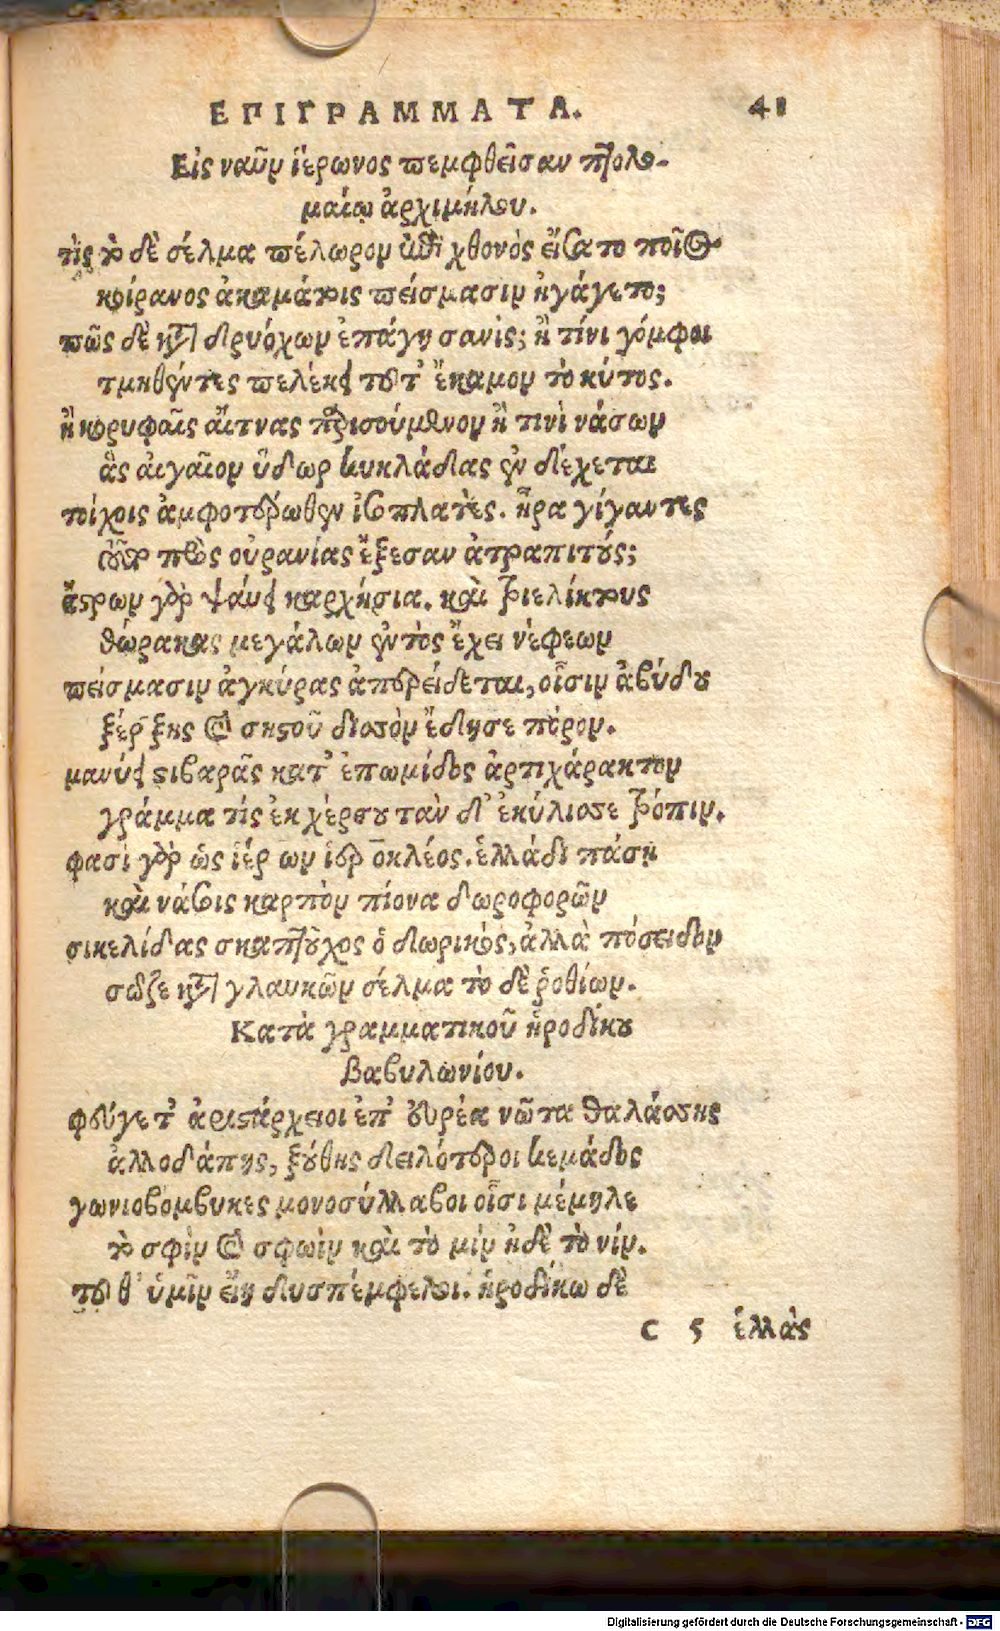 ΕΠΙΓΡΑΜΜΑΤΑ. 41
Εἰς ναῦν ἱέρωνος πεμφθεῖσαν πτολε-
μαίῳ ἀρχιμήλου.
τὶς τὸ δὲ σέλμα πέλωρον ἐπὶ χθονὸς εἵσατο ποῖος
κοίρανος ἀκαμάτοις πείσμασιν ἠγάγετο;
πῶς δὲ κατὰ δρυόχων ἐπάγη σανὶς; ἢ τίνι γόμφοι
τμηθέντες πελέκει τοῦτ᾽ ἔκαμον τὸ κύτος.
ἢ κορυφαῖς αἴτνας παρισούμενον ἢ τινὶ νάσων
ἃς αἰγαῖον ὕδωρ κυκλάδας ἐν δέχεται
τοίχοις ἀμφοτέρωθεν ἰσοπλατὲς. ἦρα γίγαντες
οὖτο πρὸς οὐρανίας ἔξεσαν ἀτραπιτούς;
ἄστρων γὰρ ψάυει καρχήσια. καὶ τριελίκτους
θώρακας μεγάλων ἐντὸς ἔχει νέφεων
πείσμασιν ἀγκύρας ἀπερείδεται, οἷσιν ἀβύδου
ξέρξης καὶ σηστοῦ δισσὸν ἔδησε πόρον.
μανύει στιβαρᾶς κατ᾽ ἐπωμίδος ἀρτιχάρακτον
γράμμα τίς ἐκ χέρσου τὰν δ᾽ ἐκύλισσε τρόπιν.
φασὶ γὰρ ὡς ἱέρων ἱεροκλέος. ἑλλάδι πάσῃ
καὶ νάσοις καρπὸν πίονα δωροφορῶν
σικελίδας σκαπτοῦχος ὁ δωρικὸς, ἀλλὰ πόσειδον
σῶζε κατὰ γλαυκῶν σέλμα τὸ δὲ ῥοθίων.
Κατὰ γραμματικοῦ ἡροδίκου
Βαβυλωνίου.
φεύγετ᾽ ἀριστάρχειοι ἐπ᾽ οὐρέα νῶτα θαλάσσης
ἀλλοδάπης, ξούθης δειλότεροι κεμάδος
γωνιοβόμβυκες μονοσύλλαβοι οἷσι μέμηλε
τὸ σφὶν καὶ σφωὶν καὶ τὸ μὶν ἠδὲ τὸ νίν.
τοῦθ᾽ ὑμῖν εἴη δυσπέμφελοι. ἡροδίκω δὲ
c 5 ἑλλὰς
Digitalisierung gefördert durch die Deutsche Forschungsgemeinschaft - DFG